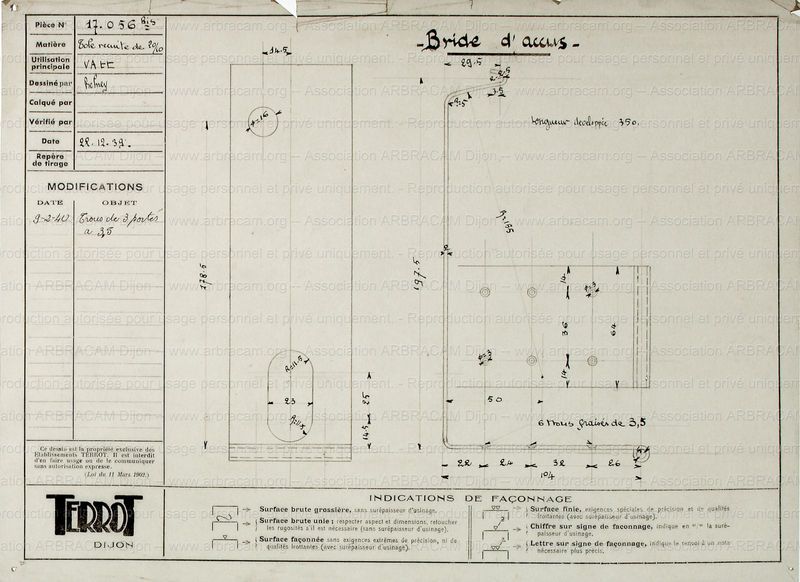 Pièce N° 17.056 Bis
Matière Tole recuite de 20/10
Utilisation principale VATT
Dessiné par
Calqué par
Vérifié par
Date 22.12.39.
Repère de tirage
MODIFICATIONS
DATE OBJET
9-2-40 Trous de 3 portés
a 3,5
Ce dessin est la propriété exclusive des
Etablissements TERROT. Il est interdit
d'en faire usage ou de le communiquer
sans autorisation expresse.
(Loi du 11 Mars 1902.)
TERROT
DIJON
- Bride d'accus -
Longueur developpée 350.
14.5
178.5
R=11.5
23
25
14.5
29.5
197.5
R=195
14
36
14
64
50
6 trous fraisés de 3,5
22 24 32 26
104
INDICATIONS DE FAÇONNAGE
Surface brute grossière, sans surépaisseur d'usinage.
Surface brute unie ; respecter aspect et dimensions, retoucher
les rugosités s'il est nécessaire (sans surépaisseur d'usinage).
Surface façonnée sans exigences extrêmes de précision, ni de
qualités frottantes (avec surépaisseur d'usinage).
Surface finie, exigences spéciales de précision et de qualités
frottantes (avec surépaisseur d'usinage).
Chiffre sur signe de façonnage, indique en m/m la surépaisseur d'usinage.
Lettre sur signe de façonnage, indique le renvoi à une note
nécessaire plus précis.
www.arbracam.org – Association ARBRACAM Dijon
Reproduction autorisée pour usage personnel et privé uniquement.